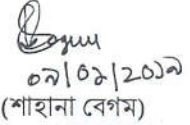 ০৯/০১/২০১৯
(শাহানা বেগম)